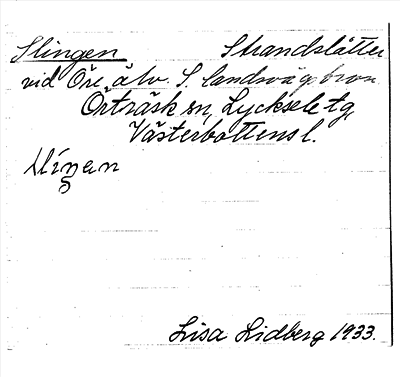 Slingen Strandslåtter
vid Öre älv. S. landsvägsbron
Örträsk sn, Lycksele tg,
Västerbottens l.
Lisa Lidberg 1933.